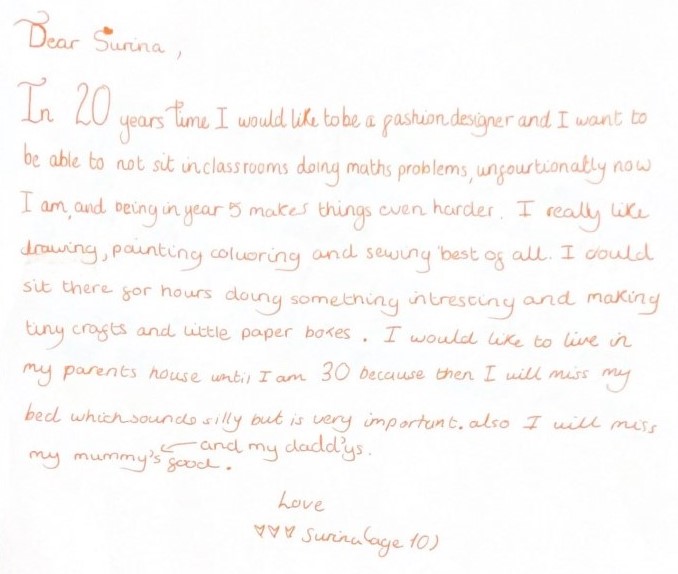 Dear Surina,
In 20 years time I would like to be a fashion designer and I want to
be able to not sit in classrooms doing maths problems, unfourtionatly now
I am, and being in year 5 makes things even harder. I really like
drawing, painting coluoring and sewing best of all. I could
sit there for hours doing something intresting and making
tiny crafts and little paper boxes. I would like to live in
my parents house until I am 30 because then I will miss my
bed which sounds silly but is very important. also I will miss
and my dadd'ys.
my mummy's food.
Love
Surina (age 10)